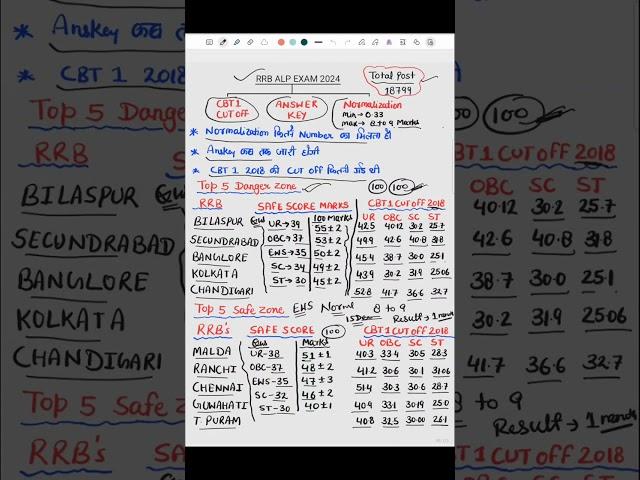 RRB ALP EXAM 2024
Total Post
18799
CBT 1 CUT OFF
ANSWER KEY
Normalization
min → 0.33
max → 8 to 9 Marks
* Normalization कितने Number का मिलता है
* Anskey कब तक जारी होगी
* CBT 1 2018 की CUT OFF कितनी गई थी
Top 5 Danger zone 100 100
RRB SAFE SCORE MARKS CBT 1 CUT OFF 2018
100 Marks UR OBC SC ST
BILASPUR UR → 39 55 ± 2 42.5 40.12 30.2 25.7
SECUNDRABAD OBC → 37 53 ± 2 49.9 42.6 40.8 31.8
BANGLORE EWS → 35 50 ± 2 45.4 38.7 30.0 25.1
KOLKATA SC → 34 49 ± 2 43.9 30.2 31.9 25.06
CHANDIGARI ST → 30 45 ± 2 52.8 41.7 36.6 32.7
Top 5 Safe zone EWS Norms 8 to 9
Result → 1 month
RRB's SAFE SCORE 100 CBT 1 CUT OFF 2018
Marks UR OBC SC ST
MALDA UR-38 51 ± 1 40.3 33.4 30.5 28.3
RANCHI OBC-37 48 ± 2 41.2 30.6 30.1 31.06
CHENNAI EWS-35 47 ± 3 51.4 30.3 30.6 28.7
GUWAHATI SC-32 46 ± 2 40.9 33.1 30.19 25.0
T. PURAM ST-30 40 ± 1 40.8 32.5 30.00 26.1